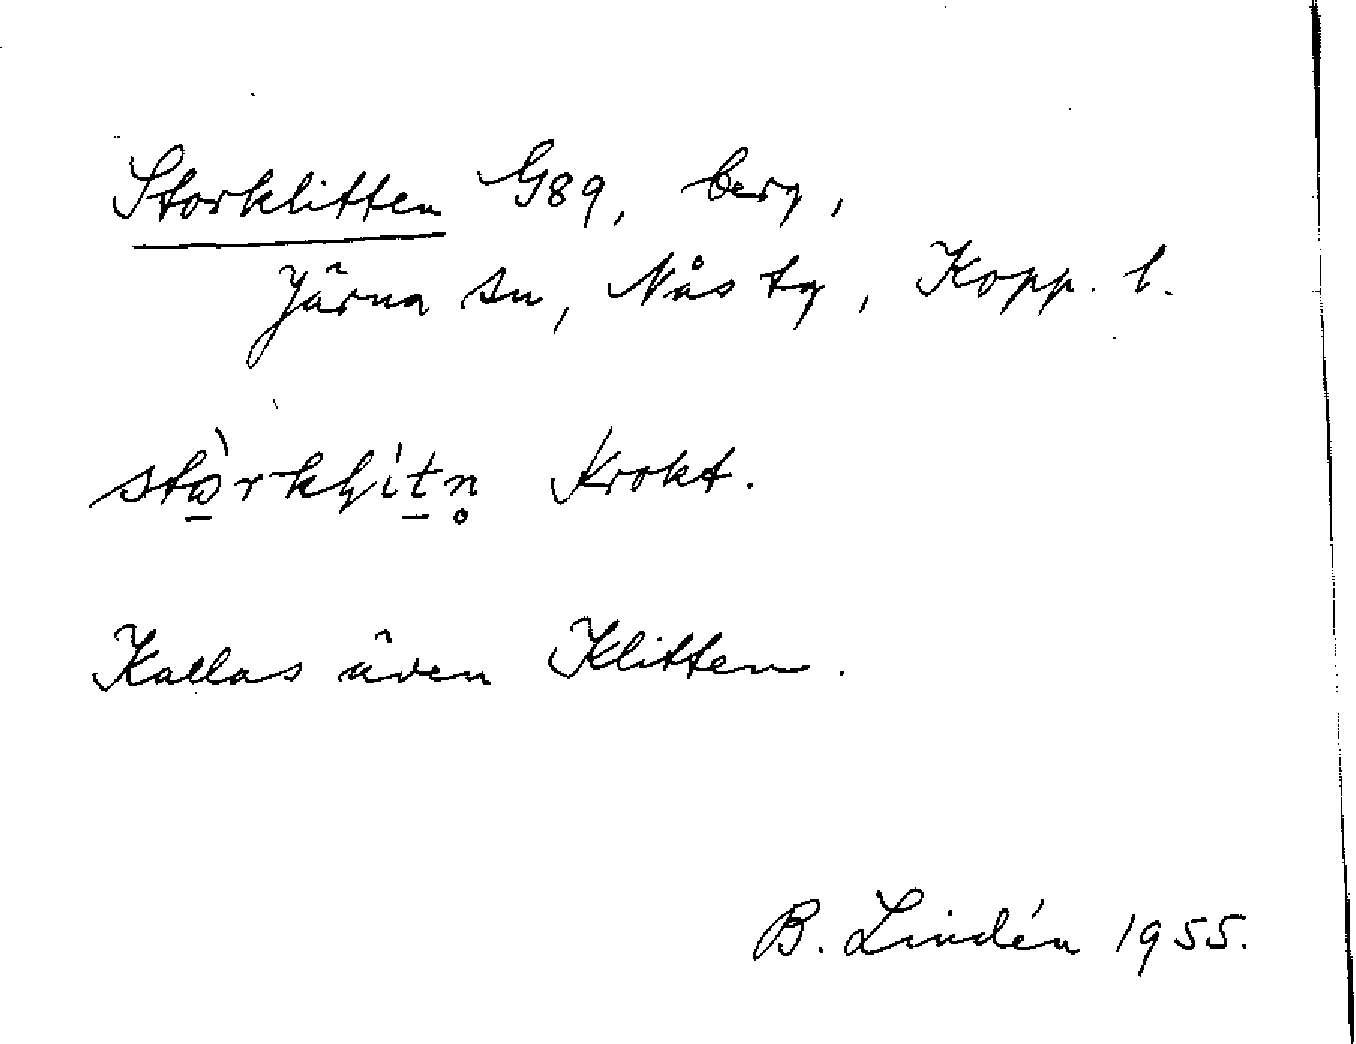 Storklitten G89, berg,
Järna sn, Nås tg, Kopp. l.
Krokt.
Kallas även Klitten.
B. Lindén 1955.